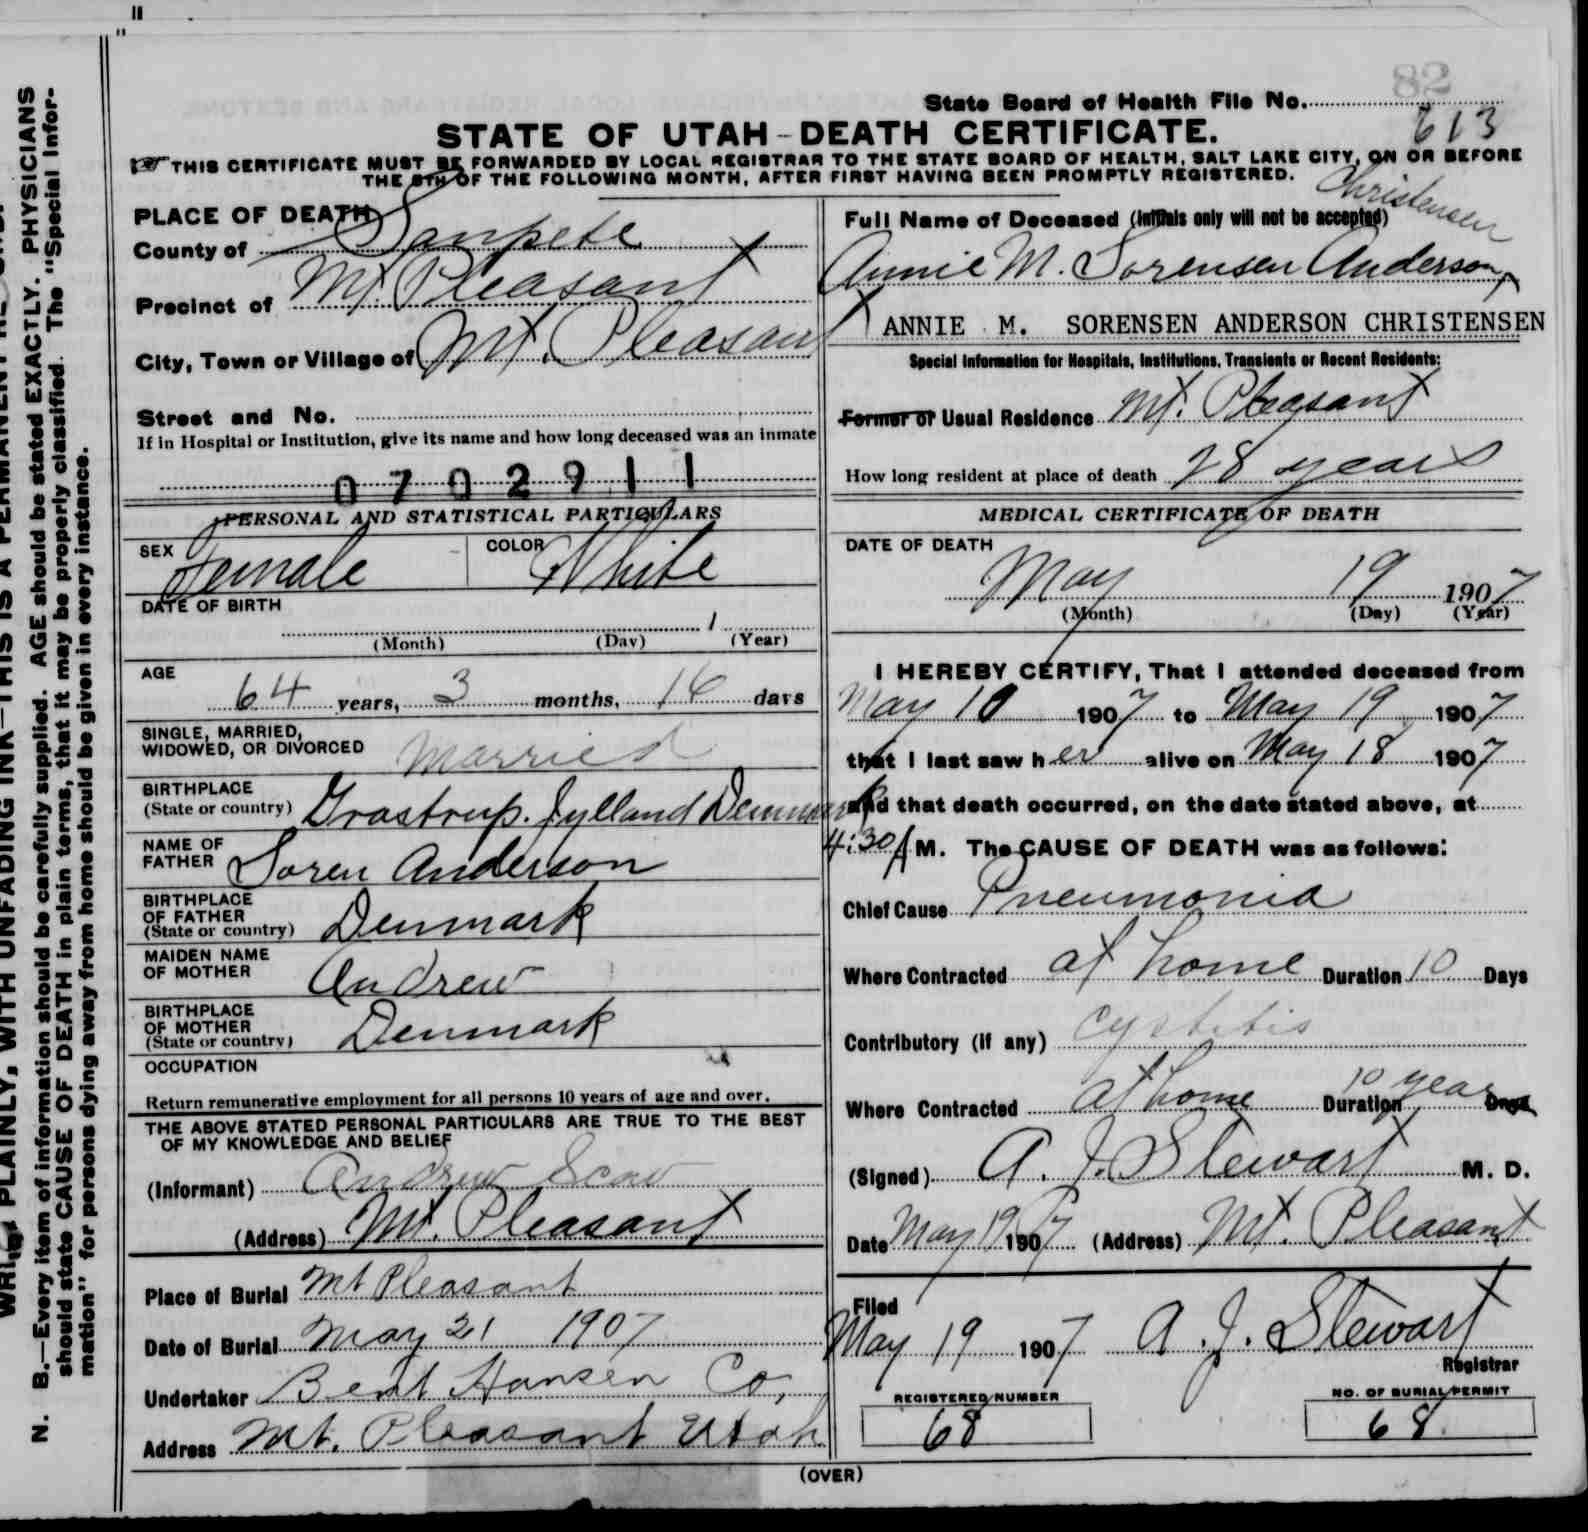 82
State Board of Health File No. 613
STATE OF UTAH - DEATH CERTIFICATE.
THIS CERTIFICATE MUST BE FORWARDED BY LOCAL REGISTRAR TO THE STATE BOARD OF HEALTH, SALT LAKE CITY, ON OR BEFORE
THE 5TH OF THE FOLLOWING MONTH, AFTER FIRST HAVING BEEN PROMPTLY REGISTERED.
PLACE OF DEATH
County of Sanpete
Precinct of Mt. Pleasant
City, Town or Village of Mt. Pleasant
Street and No.
If in Hospital or Institution, give its name and how long deceased was an inmate
0702911
PERSONAL AND STATISTICAL PARTICULARS
SEX Female COLOR White
DATE OF BIRTH
(Month) (Day) (Year)
AGE
64 years, 3 months, 16 days
SINGLE, MARRIED,
WIDOWED, OR DIVORCED Married
BIRTHPLACE
(State or country) Grastrup. Jylland Denmark
NAME OF
FATHER Soren Anderson
BIRTHPLACE
OF FATHER
(State or country) Denmark
MAIDEN NAME
OF MOTHER Andrew
BIRTHPLACE
OF MOTHER
(State or country) Denmark
OCCUPATION
Return remunerative employment for all persons 10 years of age and over.
THE ABOVE STATED PERSONAL PARTICULARS ARE TRUE TO THE BEST
OF MY KNOWLEDGE AND BELIEF
(Informant) Andrew
(Address) Mt. Pleasant
Place of Burial Mt Pleasant
Date of Burial May 21 1907
Undertaker Bent Hansen Co,
Address Mt. Pleasant Utah
Full Name of Deceased (Initials only will not be accepted) Christensen
Annie M. Sorensen Anderson
ANNIE M. SORENSEN ANDERSON CHRISTENSEN
Special Information for Hospitals, Institutions, Transients or Recent Residents:
Former or Usual Residence Mt. Pleasant
How long resident at place of death 28 years
MEDICAL CERTIFICATE OF DEATH
DATE OF DEATH
May 19 1907
(Month) (Day) (Year)
I HEREBY CERTIFY, That I attended deceased from
May 10 1907 to May 19 1907
that I last saw her alive on May 18 1907
and that death occurred, on the date stated above, at
4:30 A M. The CAUSE OF DEATH was as follows:
Chief Cause Pneumonia
Where Contracted at home Duration 10 Days
Contributory (if any) Cystitis
Where Contracted at home Duration 10 years Days
(Signed) A. J. Stewart M. D.
Date May 19 1907 (Address) Mt. Pleasant
Filed
May 19 1907 A. J. Stewart
Registrar
REGISTERED NUMBER
68
NO. OF BURIAL PERMIT
68
(OVER)
N. B.—Every item of information should be carefully supplied. AGE should be stated EXACTLY. PHYSICIANS
should state CAUSE OF DEATH in plain terms, that it may be properly classified. The "Special Infor-
mation" for persons dying away from home should be given in every instance.